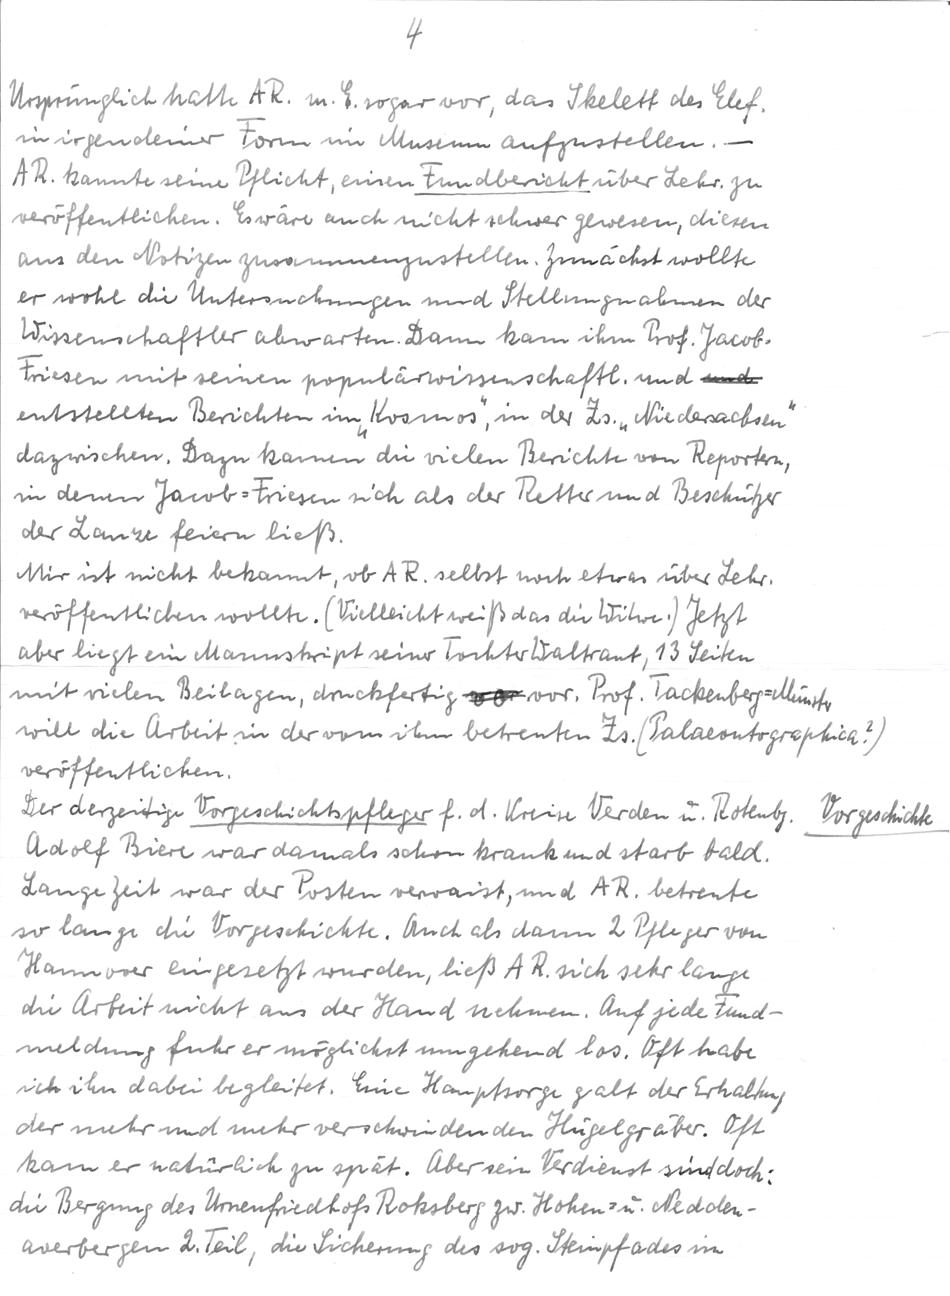 4
Ursprünglich hatte AR. m. E. sogar vor, das Skelett des Elef.
in irgendeiner Form im Museum aufzustellen. —
AR. kannte seine Pflicht, einen Fundbericht über Lehr. zu
veröffentlichen. Es wäre auch nicht schwer gewesen, diesen
aus den Notizen zusammenzustellen. Zunächst wollte
er wohl die Untersuchungen und Stellungnahmen der
Wissenschaftler abwarten. Dann kam ihm Prof. Jacob-
Friesen mit seinen populärwissenschaftl. und und
entstellten Berichten im „Kosmos", in der Zs. „Niedersachsen"
dazwischen. Dazu kamen die vielen Berichte von Reportern,
in denen Jacob=Friesen sich als der Retter und Beschützer
der Lanze feiern ließ.
Mir ist nicht bekannt, ob AR. selbst noch etwas über Lehr.
veröffentlichen wollte. (Vielleicht weiß das die Witwe.) Jetzt
aber liegt ein Manuskript seiner Tochter Waltraut, 13 Seiten
mit vielen Beilagen, druckfertig vor vor. Prof. Tackenberg=Münster
will die Arbeit in der von ihm betreuten Zs. (Palaeontographica?)
veröffentlichen.
Der derzeitige Vorgeschichtspfleger f. d. Kreise Verden u. Rotenbg. Vorgeschichte
Adolf Biere war damals schon krank und starb bald.
Lange Zeit war der Posten verwaist, und AR. betreute
so lange die Vorgeschichte. Auch als dann 2 Pfleger von
Hannover eingesetzt wurden, ließ AR. sich sehr lange
die Arbeit nicht aus der Hand nehmen. Auf jede Fund-
meldung fuhr er möglichst umgehend los. Oft habe
ich ihn dabei begleitet. Eine Hauptsorge galt der Erhaltung
der mehr und mehr verschwindenden Hügelgräber. Oft
kam er natürlich zu spät. Aber sein Verdienst sind doch:
die Bergung des Urnenfriedhofs Roksberg zw. Hohen= u. Nedden-
averbergen 2. Teil, die Sicherung des sog. Steinpfades im